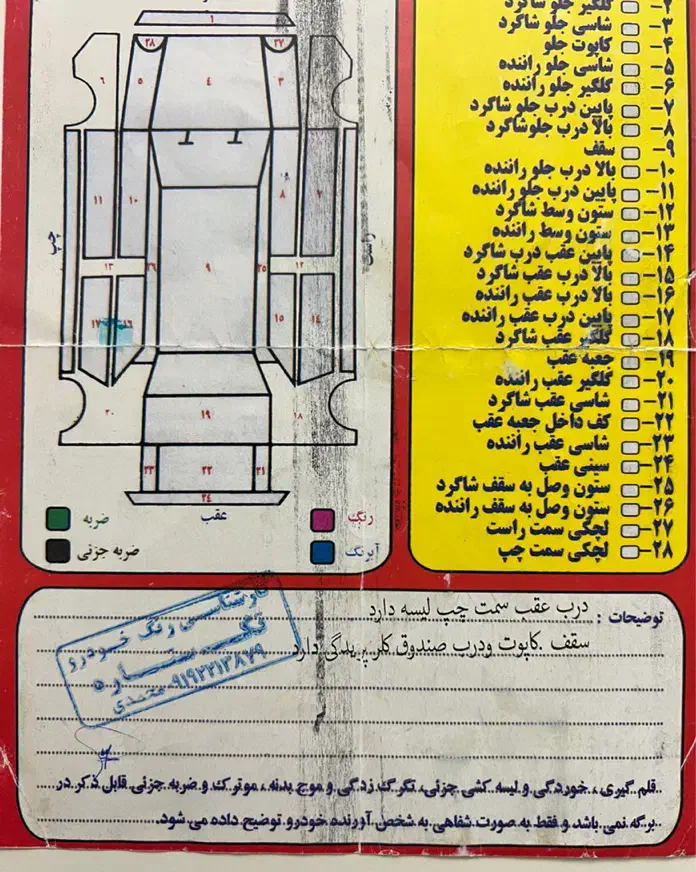 ۲- گلگیر جلو شاگرد
۳- شاسی جلو شاگرد
۴- کاپوت جلو
۵- شاسی جلو راننده
۶- گلگیر جلو راننده
۷- پایین درب جلو شاگرد
۸- بالا درب جلوشاگرد
۹- سقف
۱۰- بالا درب جلو راننده
۱۱- پایین درب جلو راننده
۱۲- ستون وسط شاگرد
۱۳- ستون وسط راننده
۱۴- پایین عقب درب شاگرد
۱۵- بالا درب عقب شاگرد
۱۶- بالا درب عقب راننده
۱۷- پایین درب عقب راننده
۱۸- گلگیر عقب شاگرد
۱۹- جعبه عقب
۲۰- گلگیر عقب راننده
۲۱- شاسی عقب شاگرد
۲۲- کف داخل جعبه عقب
۲۳- شاسی عقب راننده
۲۴- سینی عقب
۲۵- ستون وصل به سقف شاگرد
۲۶- ستون وصل به سقف راننده
۲۷- لچکی سمت راست
۲۸- لچکی سمت چپ
۱
۲۷ ۲۸
۳ ۴ ۵ ۶
۲ ۸ ۱۰ ۱۱
راست
چپ
۱۲ ۲۵ ۹ ۲۶ ۱۳
۱۴ ۱۵ ۱۶ ۱۷
۱۸ ۱۹ ۲۰
۲۱ ۲۲ ۲۳
۲۴
عقب
رنگ
ضربه
آبرنگ
ضربه جزئی
توضیحات : درب عقب سمت چپ لیسه دارد
سقف .کاپوت ودرب صندوق کلر پریدگی دارد
کارشناسی رنگ خودرو
تک ستاره
محمدی ۰۹۱۹۲۲۱۳۸۲۹
قلم گیری ، خوردگی و لیسه کشی جزئی، تگرگ زدگی و موج بدنه ، موترک و ضربه جزئی قابل ذکر در
برگه نمی باشد و فقط به صورت شفاهی به شخص آورنده خودرو توضیح داده می شود.